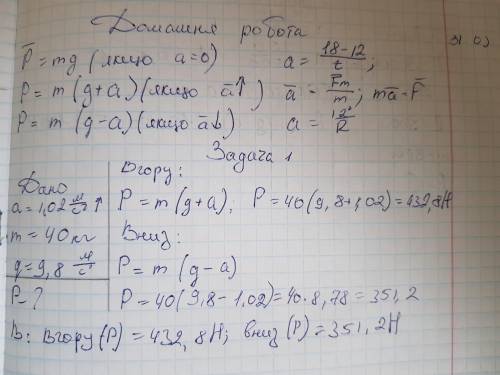 Домашня робота
P̅ = mg (якщо a=0)
P = m (g+a) (якщо a̅↑)
P = m (g-a) (якщо a̅↓)
a = 18-12 / t ;
a̅ = F̅m / m ; ma̅ = F̅
Задача 1
Дано
a = 1,02 м/с² ↑
m = 40 кг
g = 9,8 м/с²
P - ?
Вгору:
P = m (g+a), P = 40(9,8+1,02) = 432,8H
Вниз:
P = m (g-a)
P = 40(9,8-1,02) = 40·8,78 = 351,2
В: Вгору (P) = 432,8H; вниз (P) = 351,2H